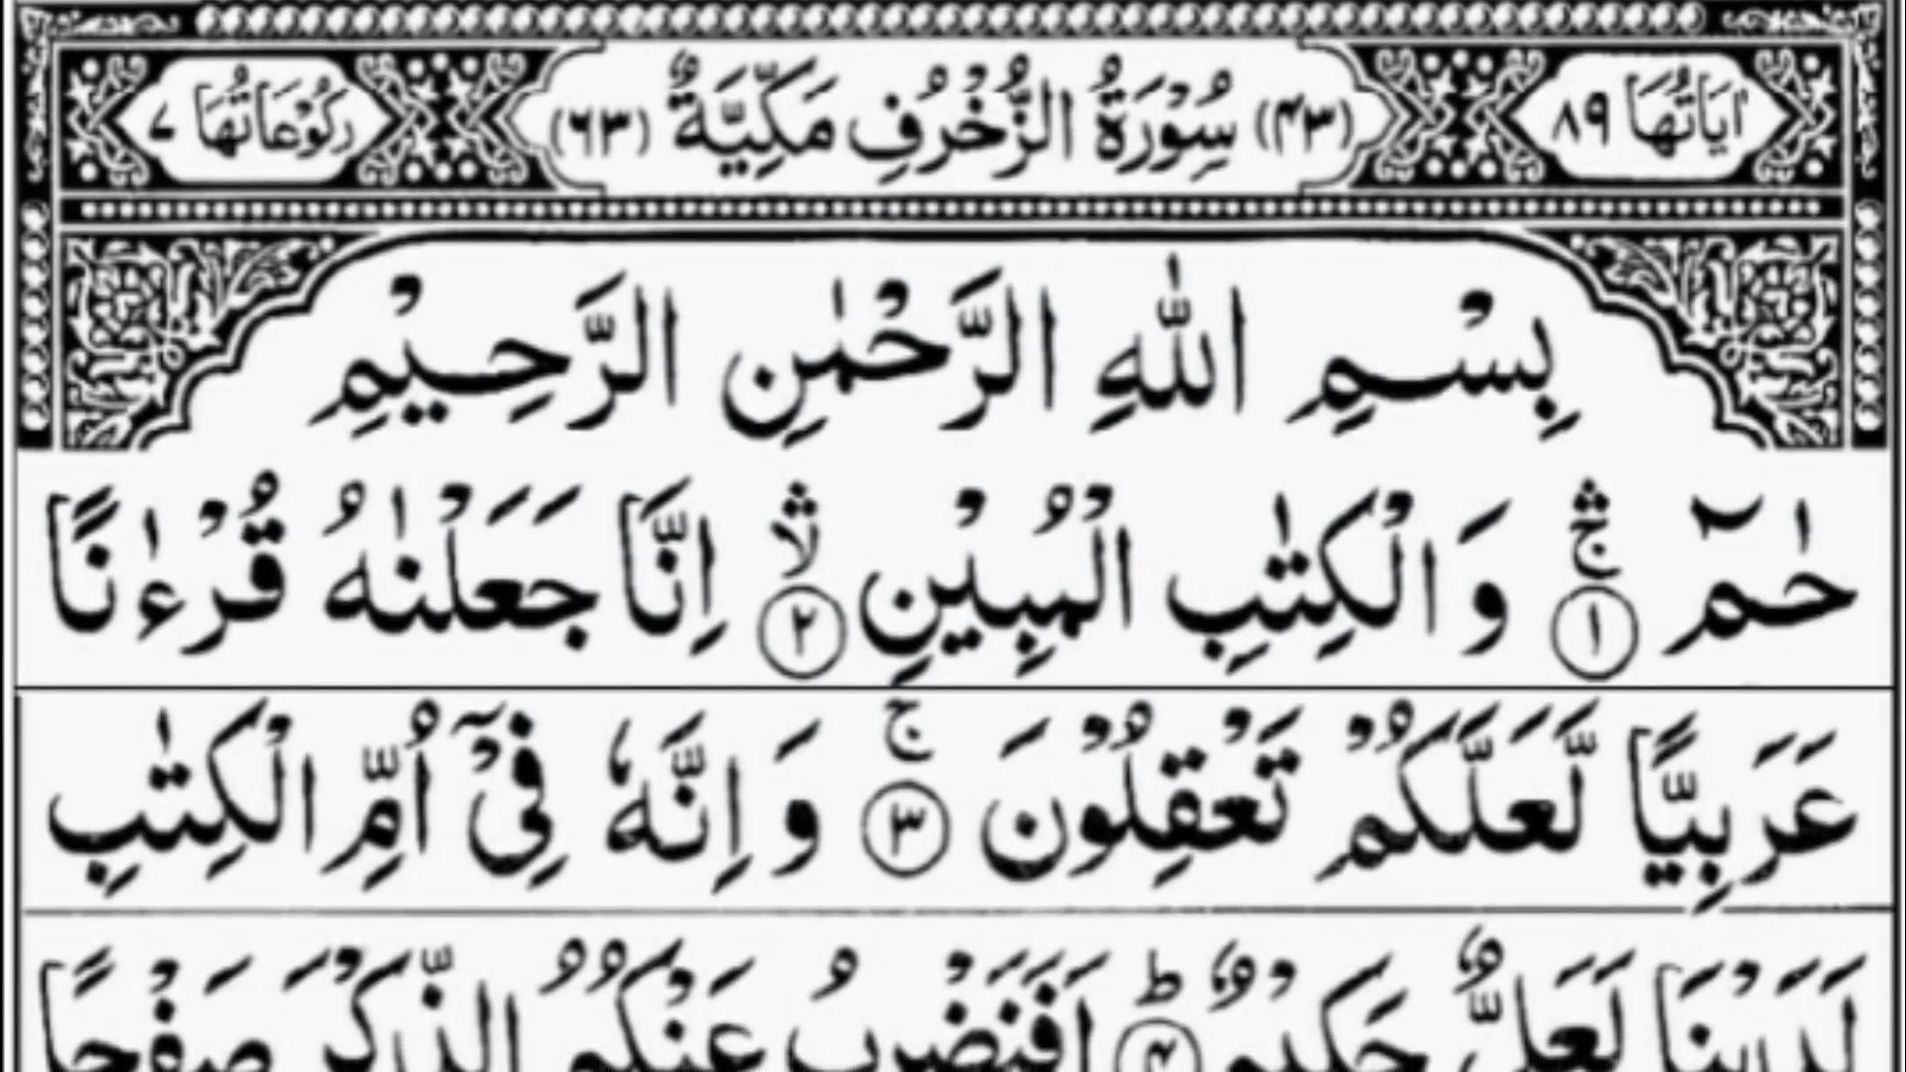 اٰيَاتُهَا ٨٩ (٤٣) سُوْرَةُ الزُّخْرُفِ مَكِّيَّةٌ (٦٣) رُكُوْعَاتُهَا ٧
بِسْمِ اللّٰهِ الرَّحْمٰنِ الرَّحِيْمِ
حٰمٓ ۚۛ ١ وَالْكِتٰبِ الْمُبِيْنِ ۙۛ ٢ اِنَّا جَعَلْنٰهُ قُرْءٰنًا
عَرَبِيًّا لَّعَلَّكُمْ تَعْقِلُوْنَ ۚ ٣ وَاِنَّهٗ فِيْٓ اُمِّ الْكِتٰبِ
لَدَيْنَا لَعَلِيٌّ حَكِيْمٌ ؕ ٤ اَفَنَضْرِبُ عَنْكُمُ الذِّكْرَ صَفْحًا